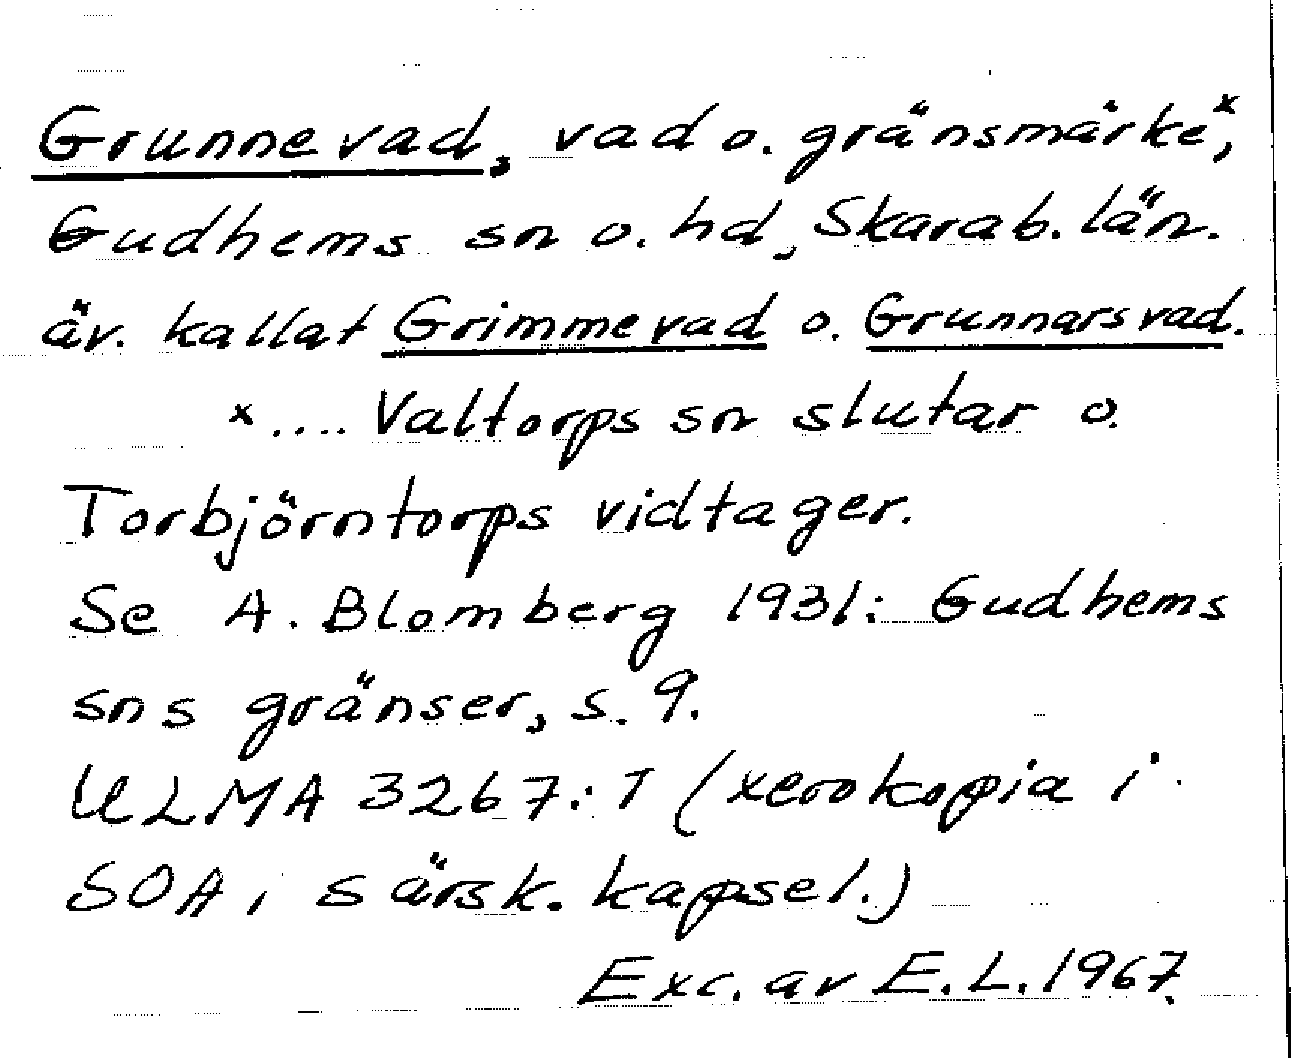 Grunnevad, vad o. gränsmärkeˣ,
Gudhems sn o. hd, Skarab. län.
äv. kallat Grimmevad o. Grunnarsvad.
x .... Valtorps sn slutar o.
Torbjörntorps vidtager.
Se A. Blomberg 1931: Gudhems
sns gränser, s. 9.
ULMA 3267:1 (xerokopia i
SOA i särsk. kapsel.)
Exc. av E.L. 1967.